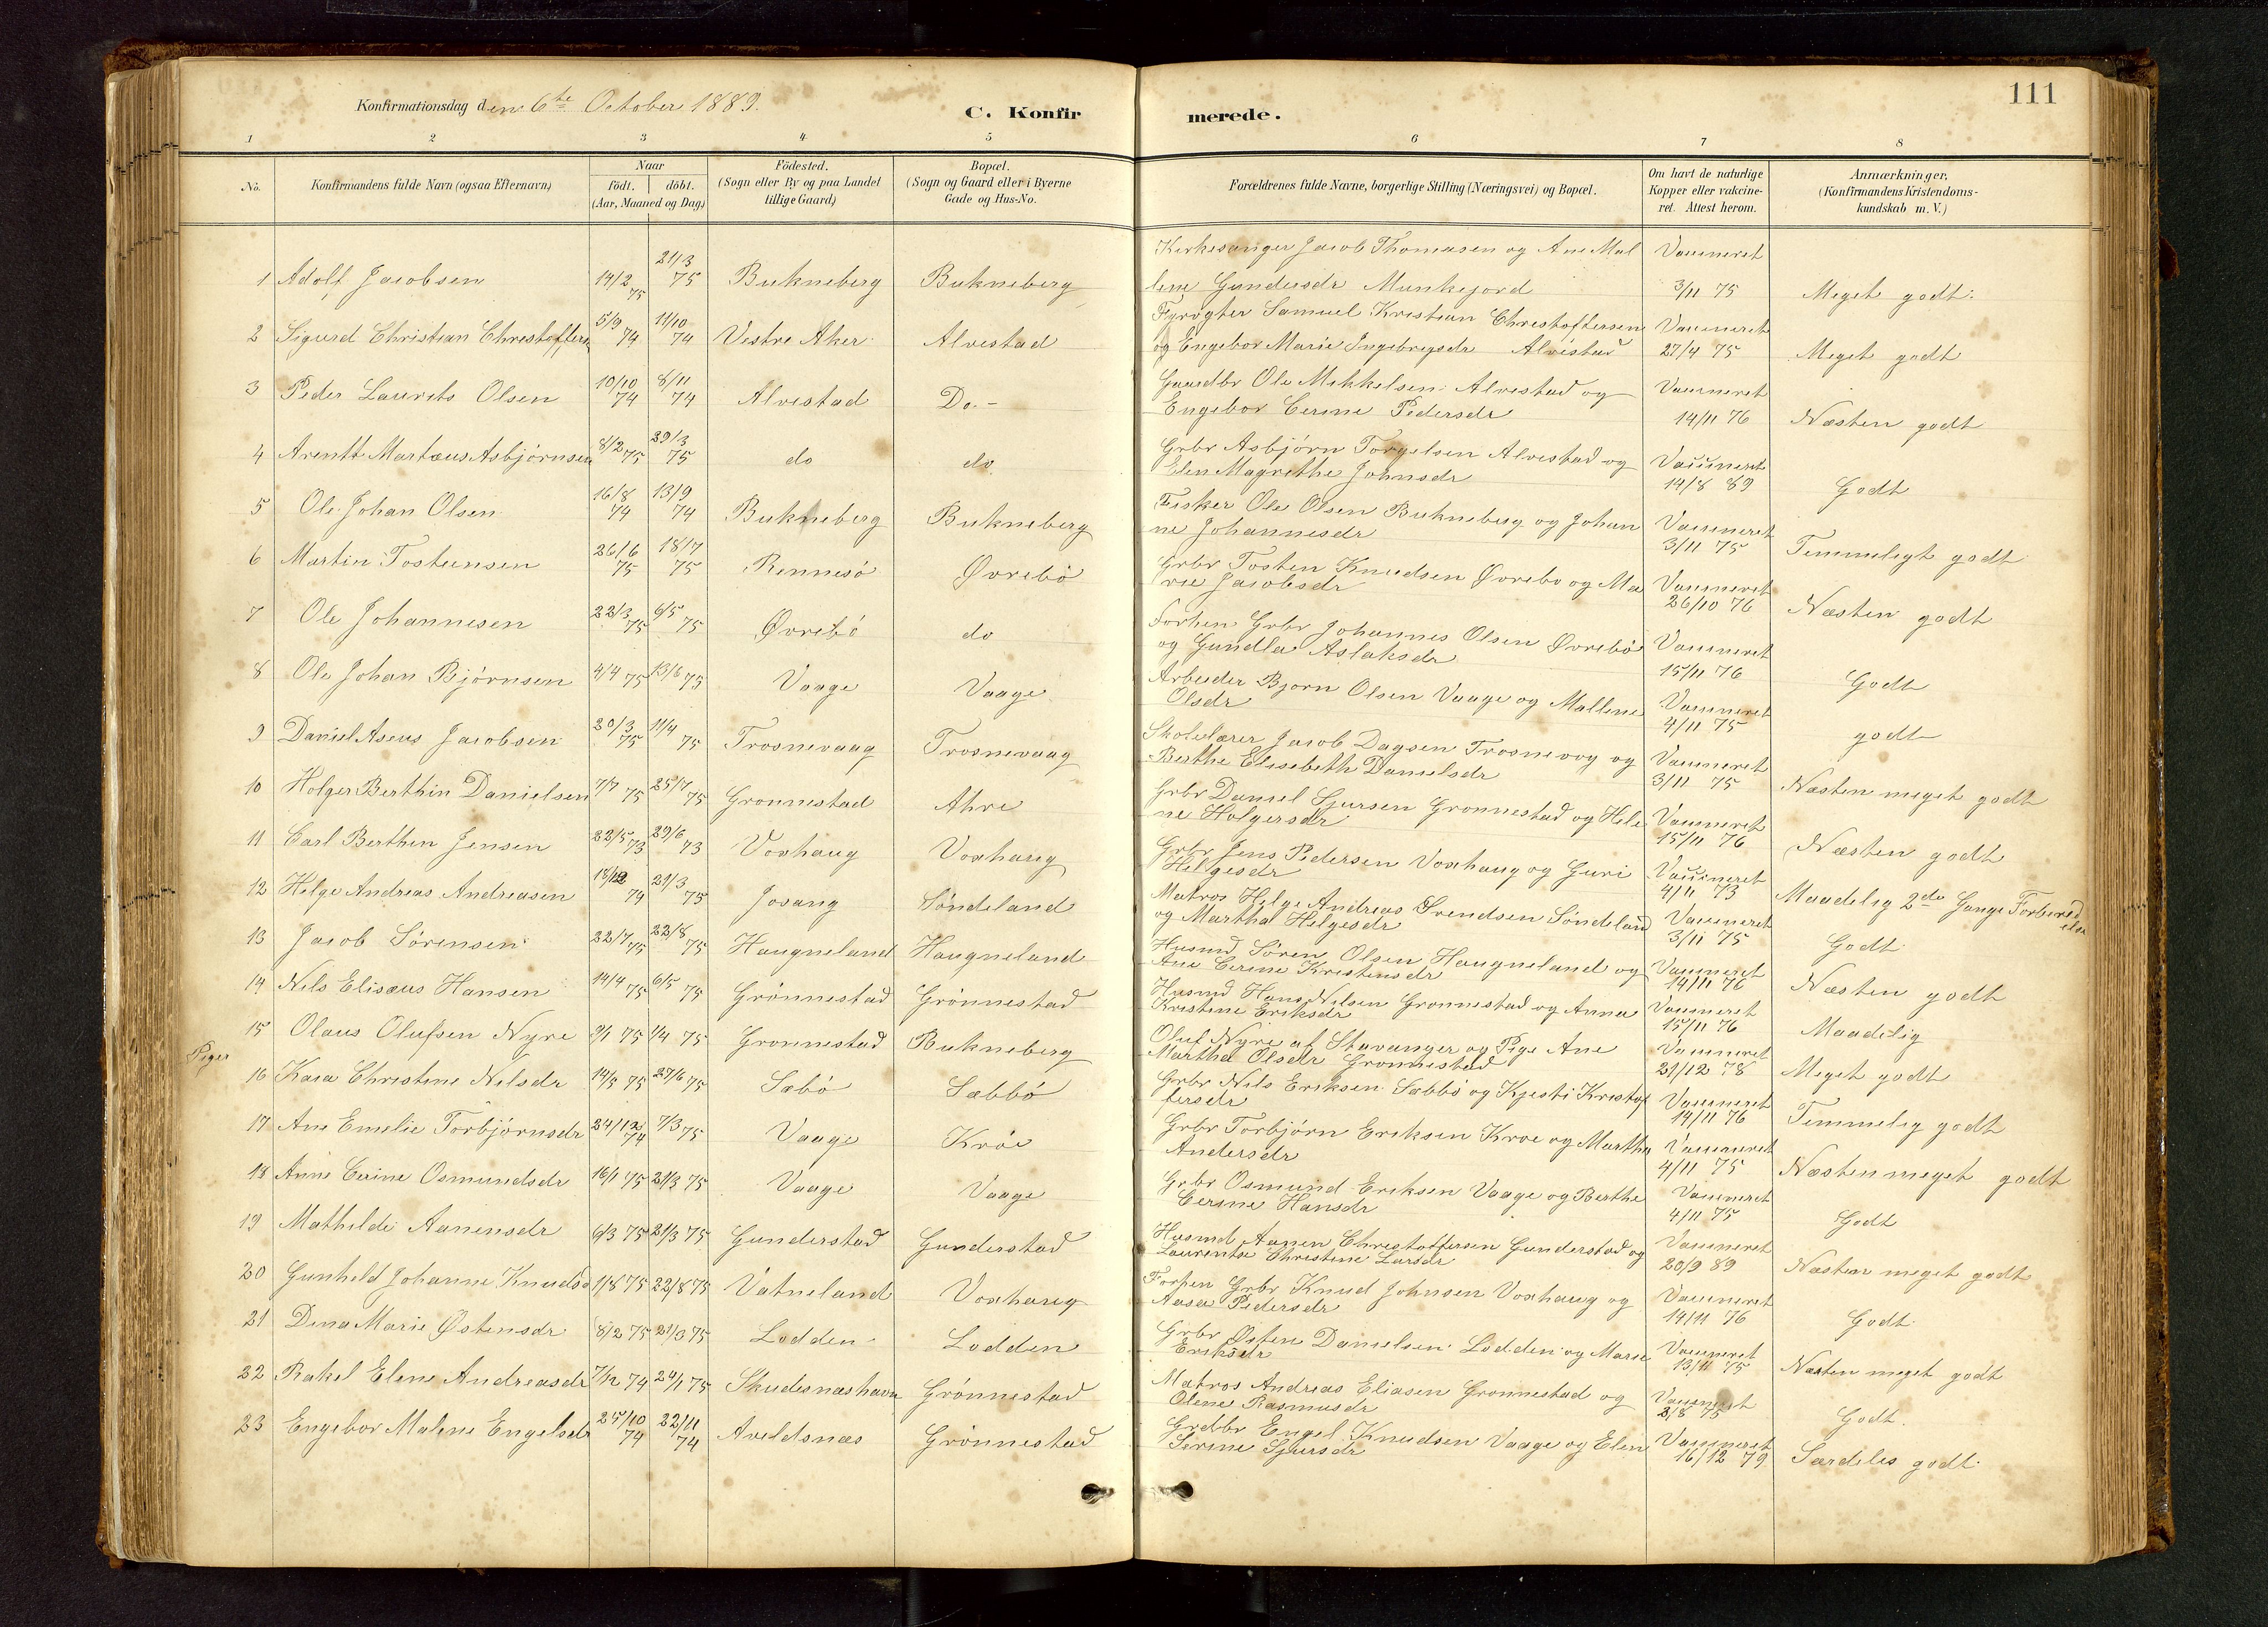 111
Konfirmationsdag den 6te October 1889.
C. Konfirmerede.
1 2 3 4 5 6 7 8
No. Konfirmandens fulde Navn (ogsaa Efternavn) Naar födt. döbt. (Aar, Maaned og Dag) Födested. (Sogn eller By og paa Landet tillige Gaard) Bopæl. (Sogn og Gaard eller i Byerne Gade og Hus-No. Forældrenes fulde Navne, borgerlige Stilling (Næringsvei) og Bopæl. Om havt de naturlige Kopper eller vakcineret. Attest herom. Anmærkninger. (Konfirmandens Kristendomskundskab m. V.)
1 Adolf Jacobsen 14/2 75 21/3 75 Bukneberg Bukneberg Kirkesanger Jacob Thomasen og Ane Mallene Gundersdr Munkejord Vaccineret 3/11 75 Meget godt.
2 Sigurd Christian Christoffersen 5/9 74 11/10 74 Vestre Aker Alvestad Fyrvogter Samuel Kristian Christoffersen og Engebor Marie Ingebregsdr Alvestad Vaccineret 27/4 75 Meget godt
3 Peder Laurits Olsen 10/10 74 8/11 74 Alvestad Do.- Gaardbr Ole Mikkelsen Alvestad og Engebor Cerine Pedersdr Vaccineret 14/11 76 Næsten godt
4 Arentt Martæus Asbjørnsen 8/2 75 29/3 75 do do Grbr Asbjørn Torgelsen Alvestad og Elen Magrethe Johnsdr Vaccineret 14/8 89 Godt
5 Ole Johan Olsen 16/8 74 13/9 74 Bukneberg Bukneberg Fisker Ole Olsen Bukneberg og Johanne Johannesdr Vaccineret 3/11 75 Temmeligt godt
6 Martin Tostensen 26/6 75 18/7 75 Rennesö Øvrebö Grbr Tosten Knudsen Øvrebö og Marie Jacobsdr Vaccineret 26/10 76 Næsten godt
7 Ole Johannesen 22/3 75 6/5 75 Øvrebö do Forhen Grbr Johannes Olsen Øvrebö og Gundla Aslaksdr Vaccineret 15/11 76 Godt
8 Ole Johan Bjørnsen 4/4 75 13/6 75 Vaage Vaage Arbeider Bjorn Olsen Vaage og Mallene Olsdr Vaccineret 4/11 75 godt
9 Daniel Aseus Jacobsen 20/3 75 11/4 75 Trosnevaag Trosnevaag Skolelærer Jacob Dagsen Trosnevog og Berthe Elisebeth Danielsdr Vaccineret 3/11 75 Næsten meget godt
10 Holger Berthin Danielsen 7/7 75 25/7 75 Gronnestad Ahre Grbr Daniel Sjursen Gronnestad og Helene Holgersdr Vaccineret 15/11 76 Næsten godt
11 Carl Berthin Jensen 22/5 73 29/6 73 Voxhaug Voxhaug Grbr Jens Pedersen Voxhaug og Guri Helgesdr Vaccineret 4/11 73 Maadelig 2de Gangs Forberedelse
12 Helge Andreas Andreasen 18/12 74 21/3 75 Josang Söndeland Matros Helge Andreas Svendsen Söndeland og Martha Helgesdr Vaccineret 3/11 75 Godt
13 Jacob Sörensen 22/7 75 22/8 75 Haugneland Haugneland Husmd Sören Olsen Haugneland og Ane Cerine Kristensdr Vaccineret 14/11 76 Næsten godt
14 Nils Elisæus Hansen 14/4 75 6/5 75 Grönnestad Grönnestad Husmd Hans Nilsen Gronnestad og Anna Kristine Eriksdr Vaccineret 15/11 76 Maadelig
15 Olaus Olufsen Nyre 2/1 75 1/4 75 Gronnestad Bukneberg Oluf Nyre af Stavanger og Pige Ane Martha Olsdr Gronnestad Vaccineret 21/12 78 Meget godt
Piger
16 Kaia Christine Nilsdr 14/5 75 27/6 75 Sæbö Sæbbö Grbr Nils Eriksen Sæbbö og Kjesti Kristoffersdr Vaccineret 14/11 76 Temmelig godt
17 Ane Emelie Torbjörnsdr 24/12 74 7/3 75 Vaage Kröe Grbr Torbjörn Eriksen Kroe og Martha Andersdr Vaccineret 4/11 75 Næsten meget godt
18 Anne Cerine Osmundsdr 16/1 75 21/3 75 Vaage Vaage Grbr Osmund Eriksen Vaage og Berthe Cerine Hansdr Vaccineret 4/11 75 Godt
19 Mathilde Aanensdr 6/3 75 21/3 75 Gunderstad Gunderstad Husmd Aanen Christoffersen Gunderstad og Laurentse Christine Larsdr Vaccineret 20/9 89 Næsten meget godt
20 Gunhild Johanne Knudsd 1/8 75 22/8 75 Vatneland Voxhaug Forhen Grbr Knud Johnsen Voxhaug og Aasa Pedersdr Vaccineret 14/11 76 Godt
21 Dina Marie Østensdr 8/2 75 21/3 75 Lodden Lodden Grbr Østen Danielsen Lodden og Marie Eriksdr Vaccineret 13/11 75 Næsten meget godt
22 Rakel Elene Andreasdr 7/12 74 24/1 75 Skudesnæshavn Grönnestad Matros Andreas Eliasen Gronnestad og Olene Rasmusdr Vaccineret 2/8 75 Godt.
23 Engebor Malene Engelsdr 25/10 74 22/11 74 Aveldsnæs Grönnestad Grdbr Engel Knudsen Vaage og Elen Serine Sjursdr Vaccineret 16/12 79 Særdeles godt.